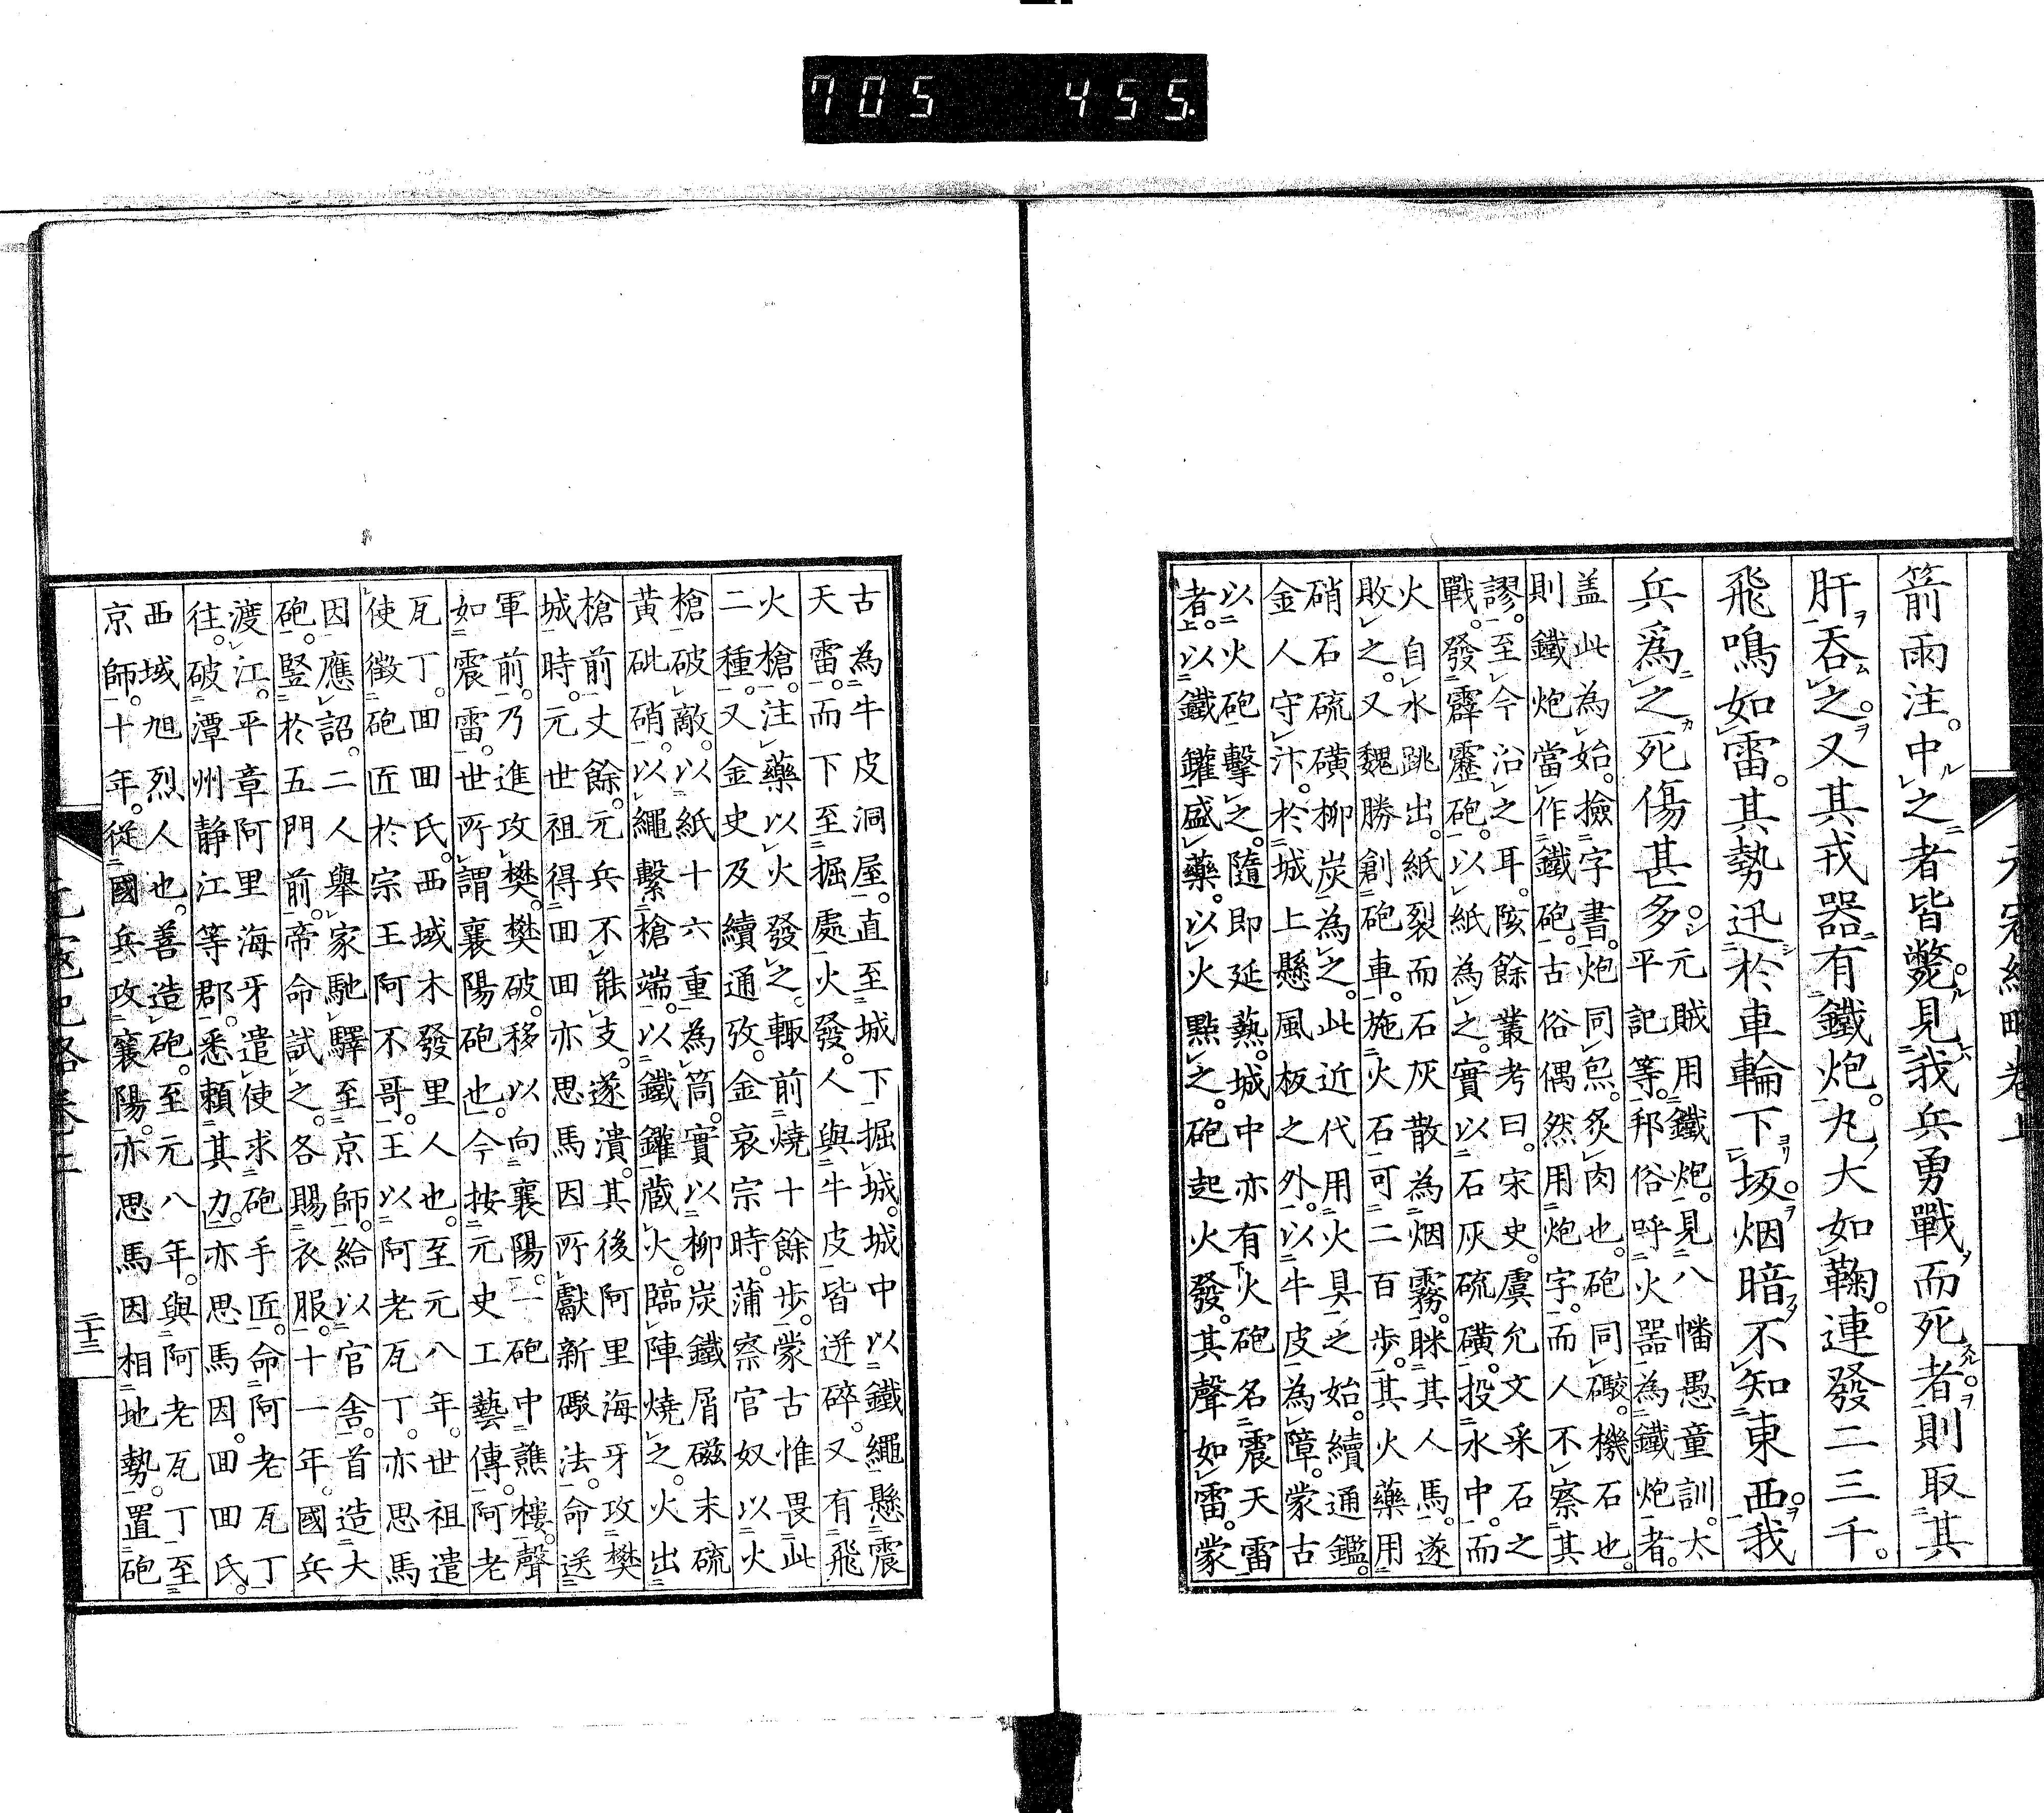 705 455.
元寇紀略卷上
箭雨注。中之者皆斃。見我兵勇戰而死者。則取其
肝吞之。又其戎器有鐵炮。丸大如鞠。連發二三千。
飛鳴如雷。其勢迅於車輪下坂。烟暗不知東西。我
兵爲之死傷甚多。
元賊用鐵炮。見八幡愚童訓。太
平記等。邦俗呼火器為鐵炮者。
盖此為始。撿字書。炮同炰。炙肉也。砲同礮。機石也。
則鐵炮當作鐵砲。古俗偶然用炮字。而人不察其
謬。至今沿之耳。陔餘叢考曰。宋史。虞允文采石之
戰。發霹靂砲。以紙為之。實以石灰硫磺。投水中。而
火自水跳出。紙裂而石灰散為烟霧。眯其人馬。遂
敗之。又魏勝創砲車。施火石可二百歩。其火藥用
硝石硫磺柳炭為之。此近代用火具之始。續通鑑。
金人守汴。於城上懸風板之外。以牛皮為障。蒙古
以火砲擊之。隨即延爇。城中亦有火砲名震天雷
者。以鐵鑵盛藥。以火點之。砲起火發。其聲如雷。蒙
古為牛皮洞屋。直至城下掘城。城中以鐵繩懸震
天雷。而下至掘處火發。人與牛皮皆迸碎。又有飛
火槍。注藥以火發之。輙前燒十餘歩。蒙古惟畏此
二種。又金史及續通攷。金哀宗時。蒲察官奴以火
槍破敵。以紙十六重為筒。實以柳炭鐵屑磁末硫
黃砒硝。以繩繫槍端。以鐵鑵藏火。臨陣燒之。火出
槍前丈餘。元兵不能支。遂潰。其後阿里海牙攻樊
城時。元世祖得囬囬亦思馬因所獻新礮法。命送
軍前。乃進攻樊。樊破。移以向襄陽。一砲中譙樓。聲
如震雷。世所謂襄陽砲也。今按元史工藝傳。阿老
瓦丁。囬囬氏。西域木發里人也。至元八年。世祖遣
使徵砲匠於宗王阿不哥。王以阿老瓦丁。亦思馬
因應詔。二人舉家馳驛至京師。給以官舍。首造大
砲。竪於五門前。帝命試之。各賜衣服。十一年。國兵
渡江。平章阿里海牙遣使求砲手匠。命阿老瓦丁
往。破潭州静江等郡。悉賴其力。亦思馬因。囬囬氏。
西域旭烈人也。善造砲。至元八年。與阿老瓦丁至
京師。十年。從國兵攻襄陽。亦思馬因相地勢。置砲
元寇紀略卷上
二十三